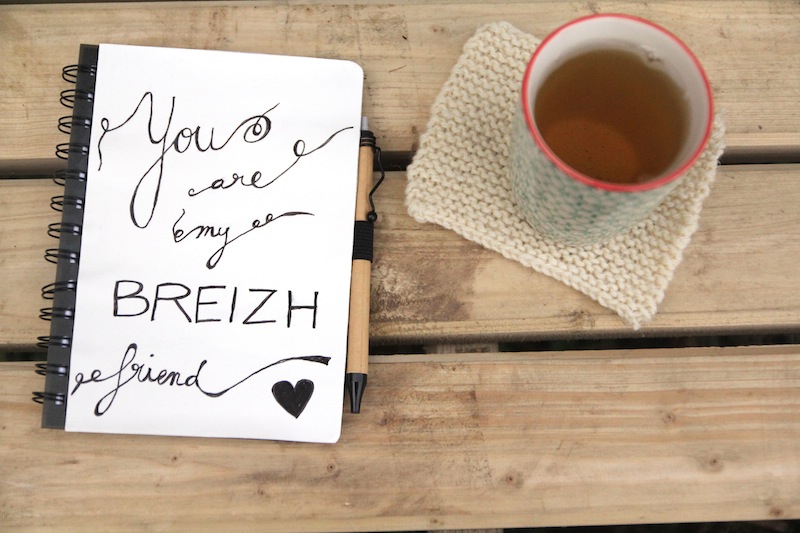 You
are
my
BREIZH
friend